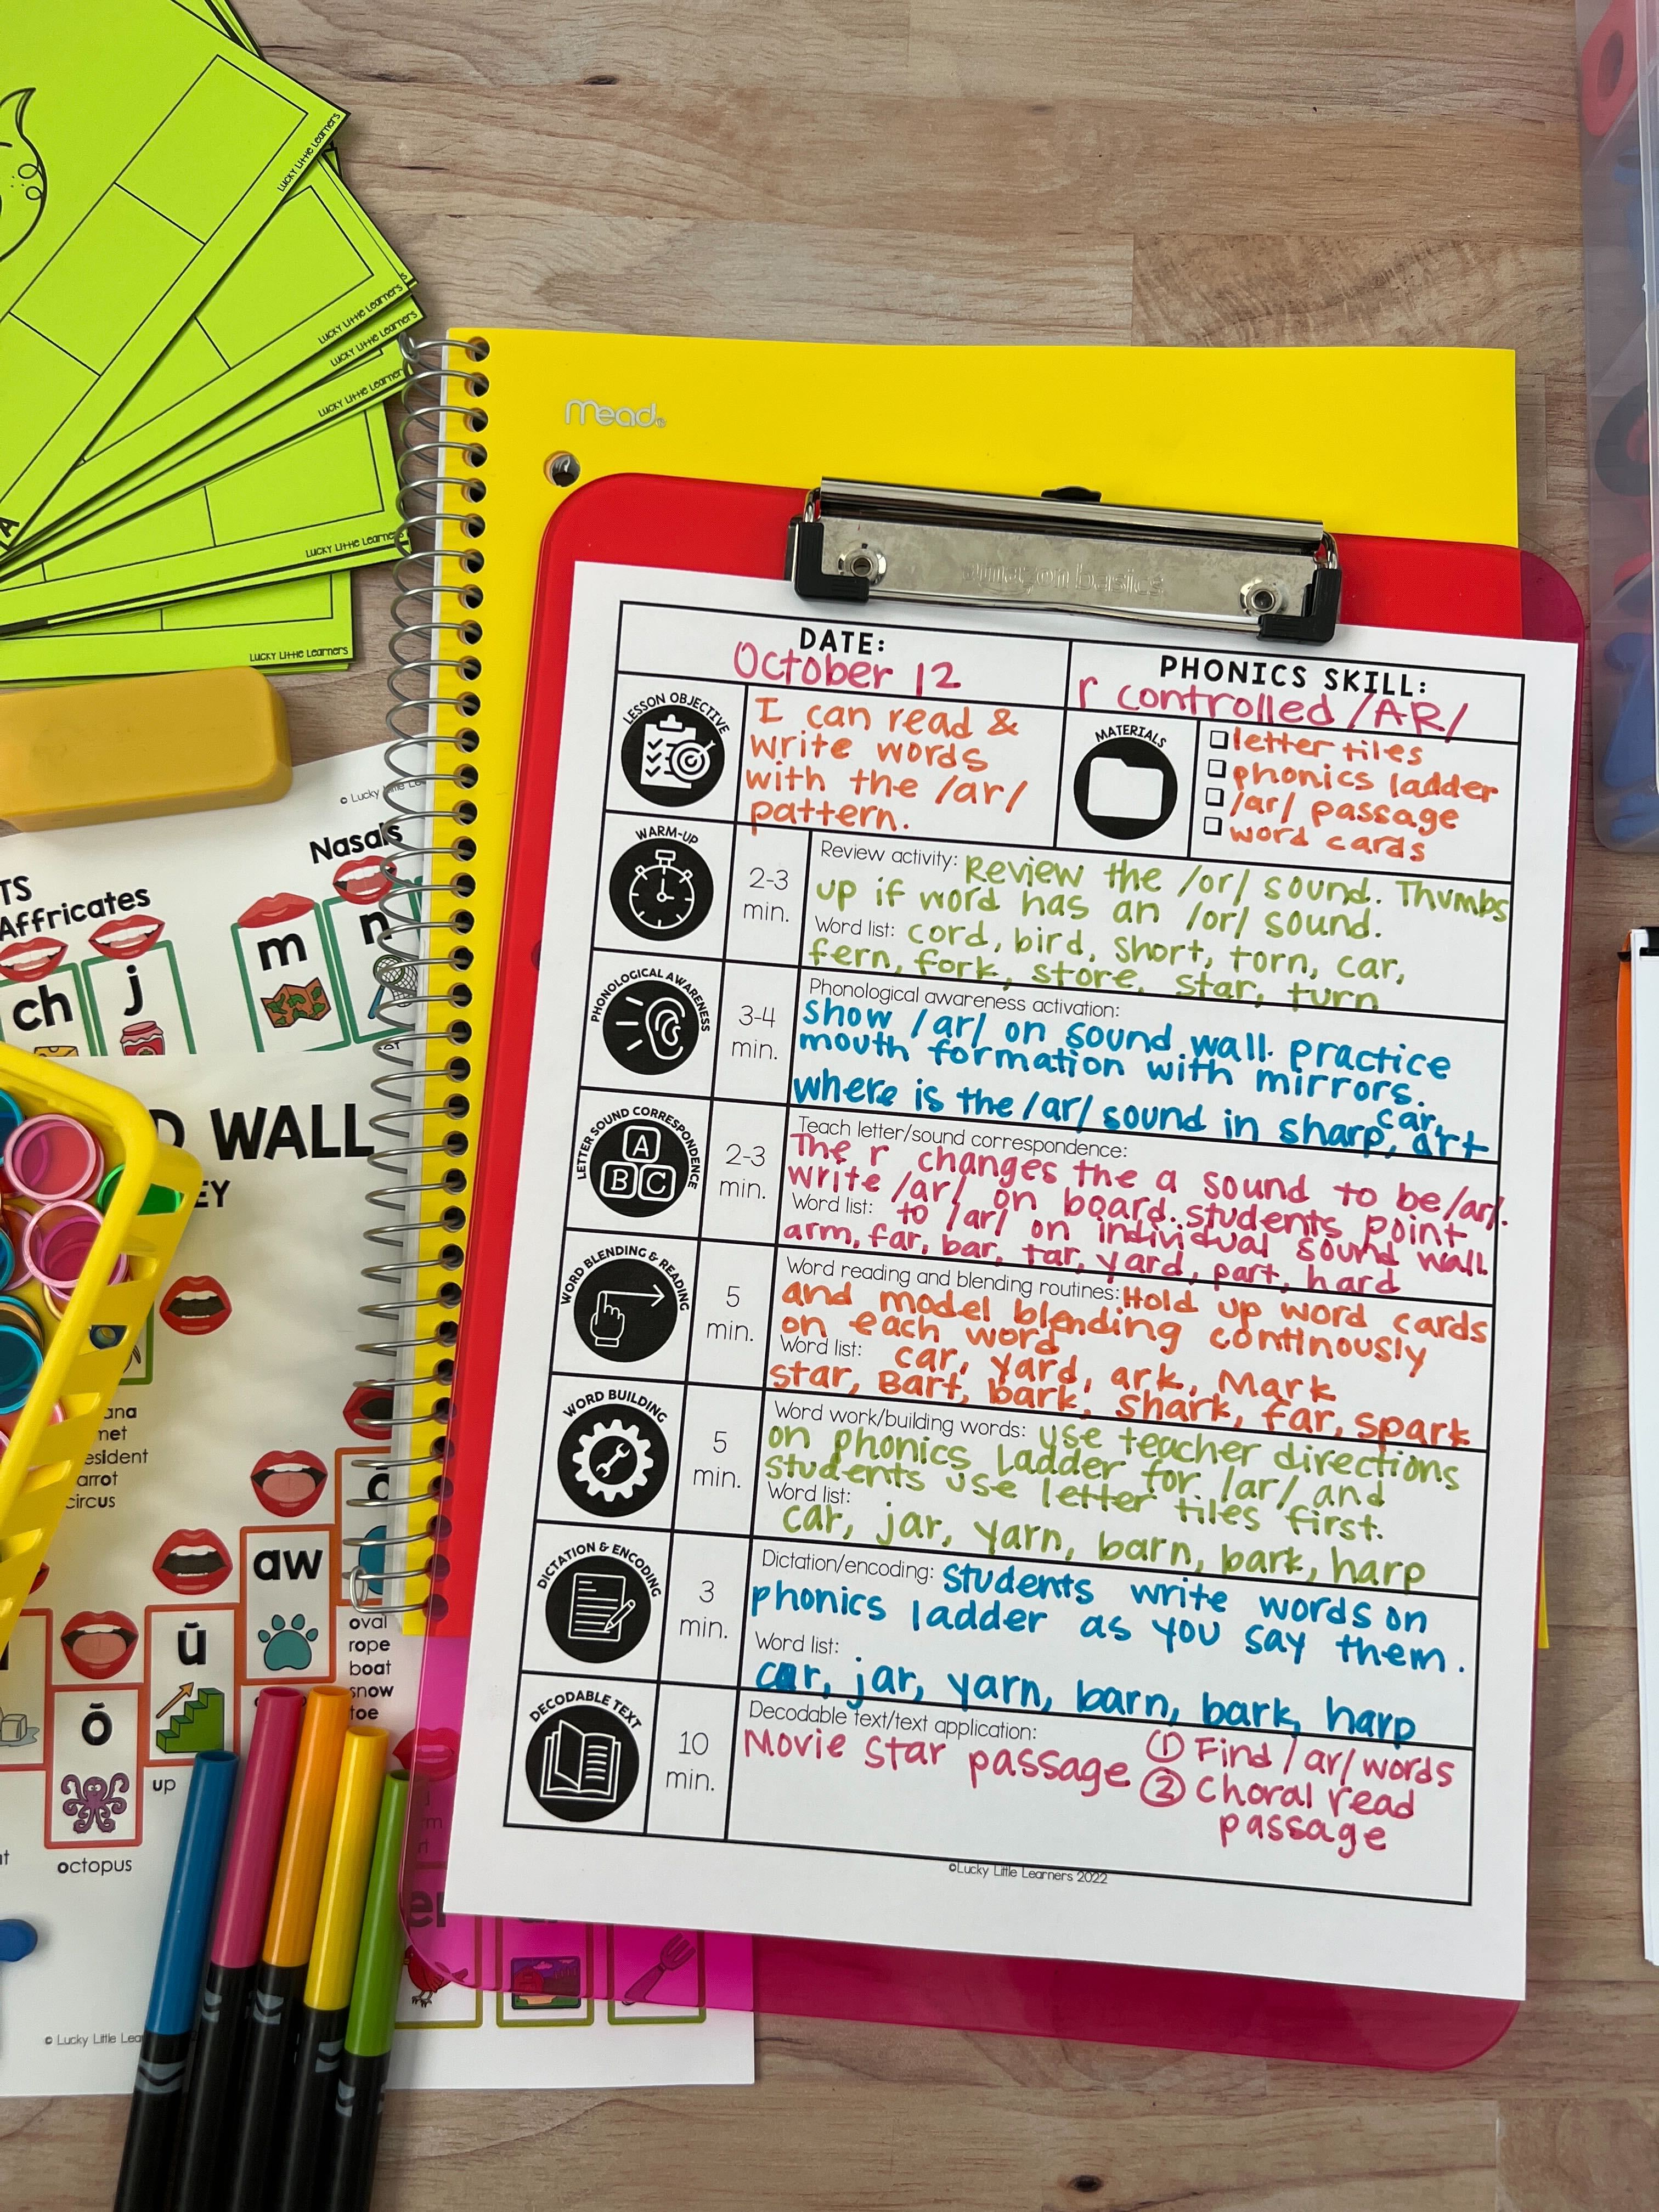 Lucky Little Learners
Lucky Little Learners
Lucky Little Learners
Lucky Little Learners
Lucky Little Learners
Lucky Little Learners
A
Mead
amazon basics
DATE:
October 12
PHONICS SKILL:
r controlled /AR/
LESSON OBJECTIVE
I can read &
write words
with the /ar/
pattern.
MATERIALS
letter tiles
phonics ladder
/ar/ passage
word cards
WARM-UP
2-3
min.
Review activity: Review the /or/ sound. Thumbs
up if word has an /or/ sound.
Word list: cord, bird, short, torn, car,
fern, fork, store, star, turn
PHONOLOGICAL AWARENESS
3-4
min.
Phonological awareness activation:
show /ar/ on sound wall. practice
mouth formation with mirrors.
where is the /ar/ sound in sharp, car, art
LETTER SOUND CORRESPONDENCE
A
B C
2-3
min.
Teach letter/sound correspondence:
The r changes the a sound to be /ar/.
write /ar/ on board. students point
Word list: to /ar/ on individual sound wall
arm, far, bar, tar, yard, part, hard
WORD BLENDING & READING
5
min.
Word reading and blending routines: Hold up word cards
and model blending continously
on each word
Word list: car, yard, ark, Mark
star, Bart, bark, shark, far, spark
WORD BUILDING
5
min.
Word work/building words: use teacher directions
on phonics ladder for /ar/ and
students use letter tiles first.
Word list:
car, jar, yarn, barn, bark, harp
DICTATION & ENCODING
3
min.
Dictation/encoding: students write words on
phonics ladder as you say them.
Word list:
car, jar, yarn, barn, bark, harp
DECODABLE TEXT
10
min.
Decodable text/text application:
Movie star passage ① Find /ar/ words
② Choral read
passage
©Lucky Little Learners 2022
© Lucky
Nasals
TS
Affricates
ch
j
m
n
WALL
EY
circus
aw
ŭ
ŏ
oval
rope
boat
snow
toe
up
octopus
er
© Lucky Little